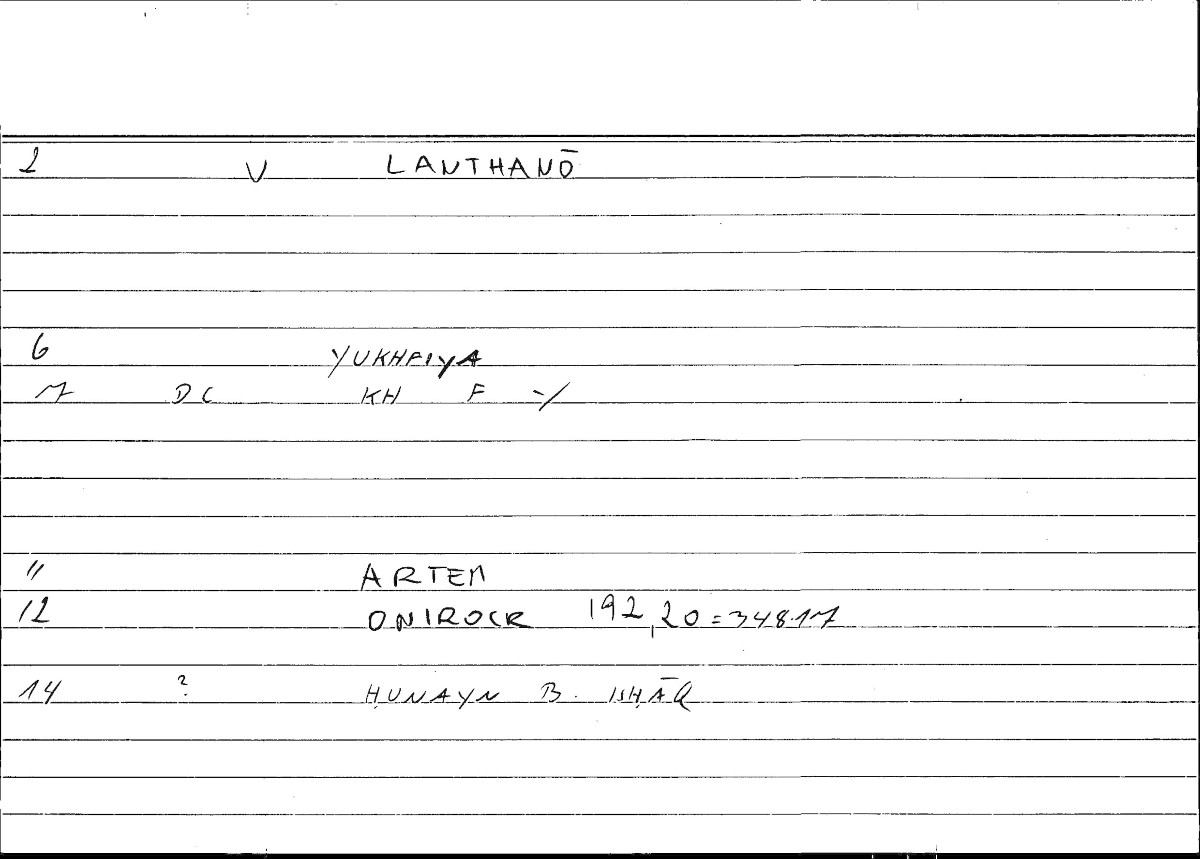 2 V LANTHANŌ
6 YUKHFIYA
7 DC KH F -/
11 ARTEM
12 ONIROCR 192,20=348.17
14 ? ḤUNAYN B. ISḤĀQ